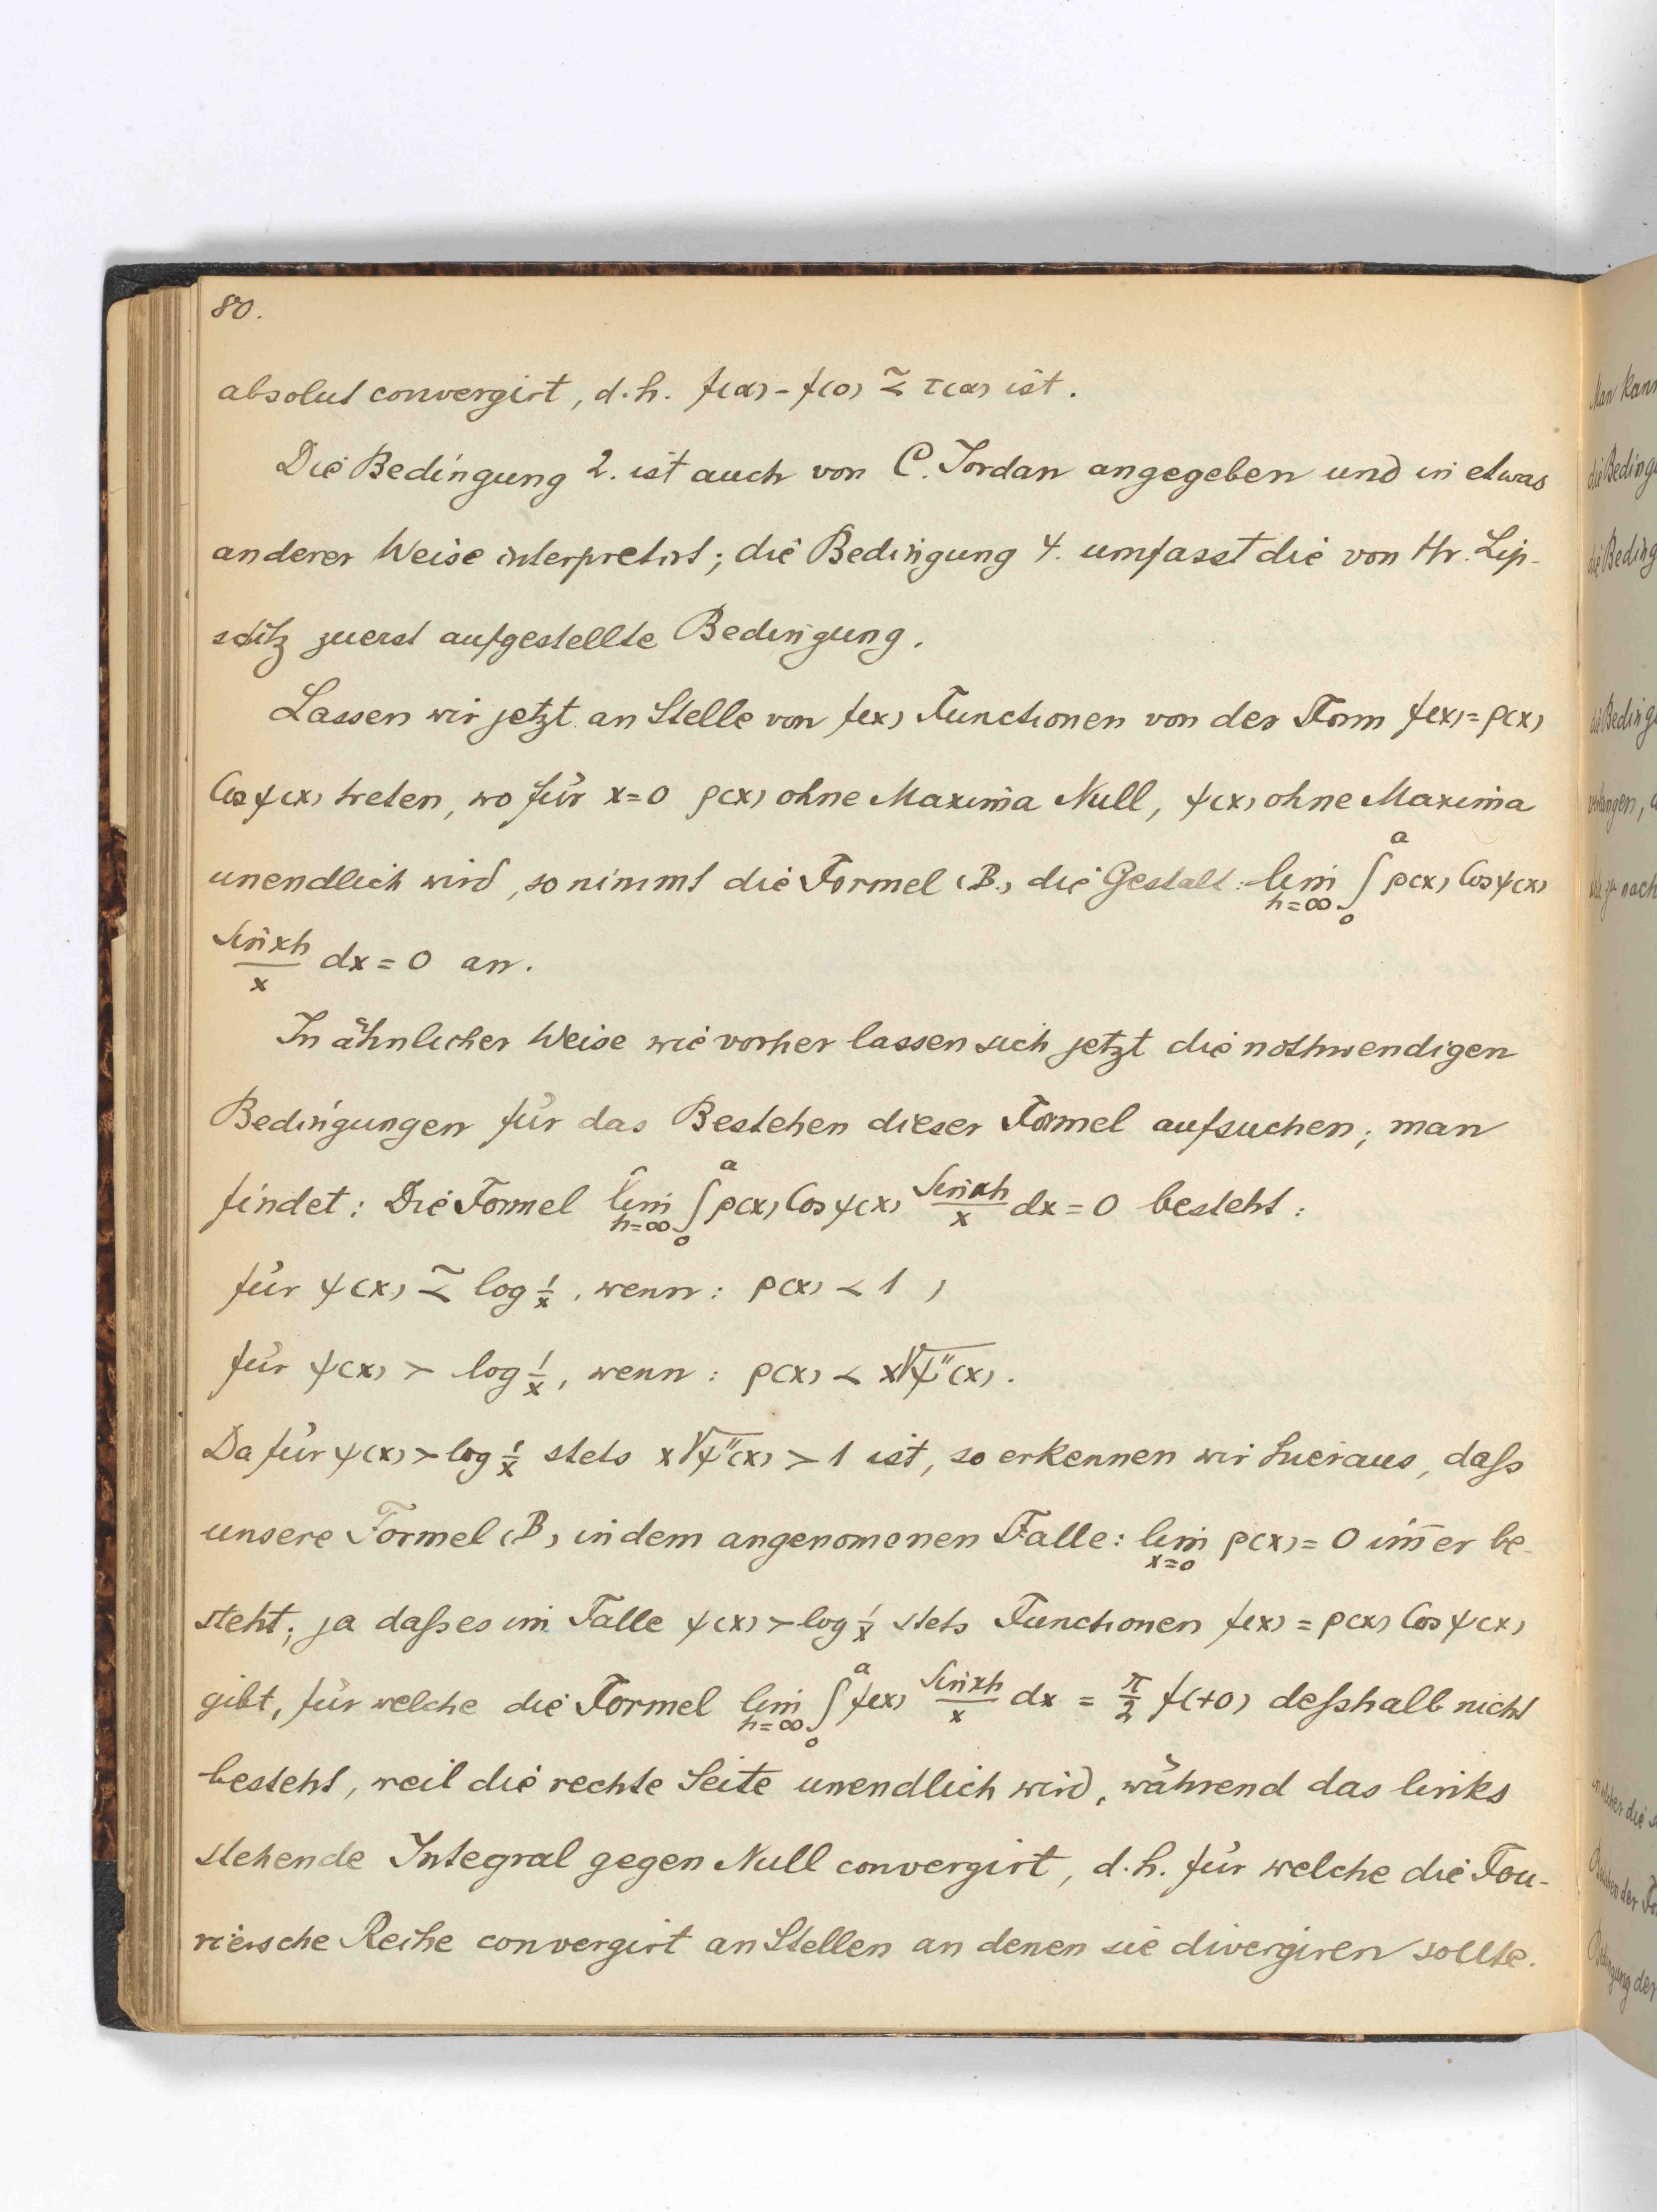 80.
absolut convergirt, d. h. f(α) – f(0) ≾ τ(α) ist.
Die Bedingung 2. ist auch von C. Jordan angegeben und in etwas
anderer Weise interpretirt; die Bedingung 4. umfasst die von Hr. Lip-
schitz zuerst aufgestellte Bedingung.
Lassen wir jetzt an Stelle von f(x) Functionen von der Form f(x) = ρ(x)
Cos ψ(x) treten, wo für x=0 ρ(x) ohne Maxima Null, ψ(x) ohne Maxima
unendlich wird, so nimmt die Formel (B.) die Gestalt: lim_{h=∞} ∫_0^a ρ(x) Cos ψ(x)
Sin xh / x dx = 0 an.
In ähnlicher Weise wie vorher lassen sich jetzt die nothwendigen
Bedingungen für das Bestehen dieser Formel aufsuchen; man
findet: Die Formel lim_{h=∞} ∫_0^a ρ(x) Cos ψ(x) Sin xh / x dx = 0 besteht:
für ψ(x) ≾ log 1/x, wenn: ρ(x) ≺ 1,
für ψ(x) ≻ log 1/x, wenn: ρ(x) ≺ x√ψ''(x).
Da für ψ(x) ≻ log 1/x stets x√ψ''(x) ≻ 1 ist, so erkennen wir hieraus, daſs
unsere Formel (B) in dem angenom̅enen Falle: lim_{x=0} ρ(x) = 0 im̅er be-
steht; ja daſs es im Falle ψ(x) ≻ log 1/x stets Functionen f(x) = ρ(x) Cos ψ(x)
gibt, für welche die Formel lim_{h=∞} ∫_0^a f(x) Sin xh / x dx = π/2 f(+0) deſshalb nicht
besteht, weil die rechte Seite unendlich wird, während das links
stehende Integral gegen Null convergirt, d. h. für welche die Fou-
riersche Reihe convergirt an Stellen an denen sie divergiren sollte.
Man kann
die Beding
die Beding
die Beding